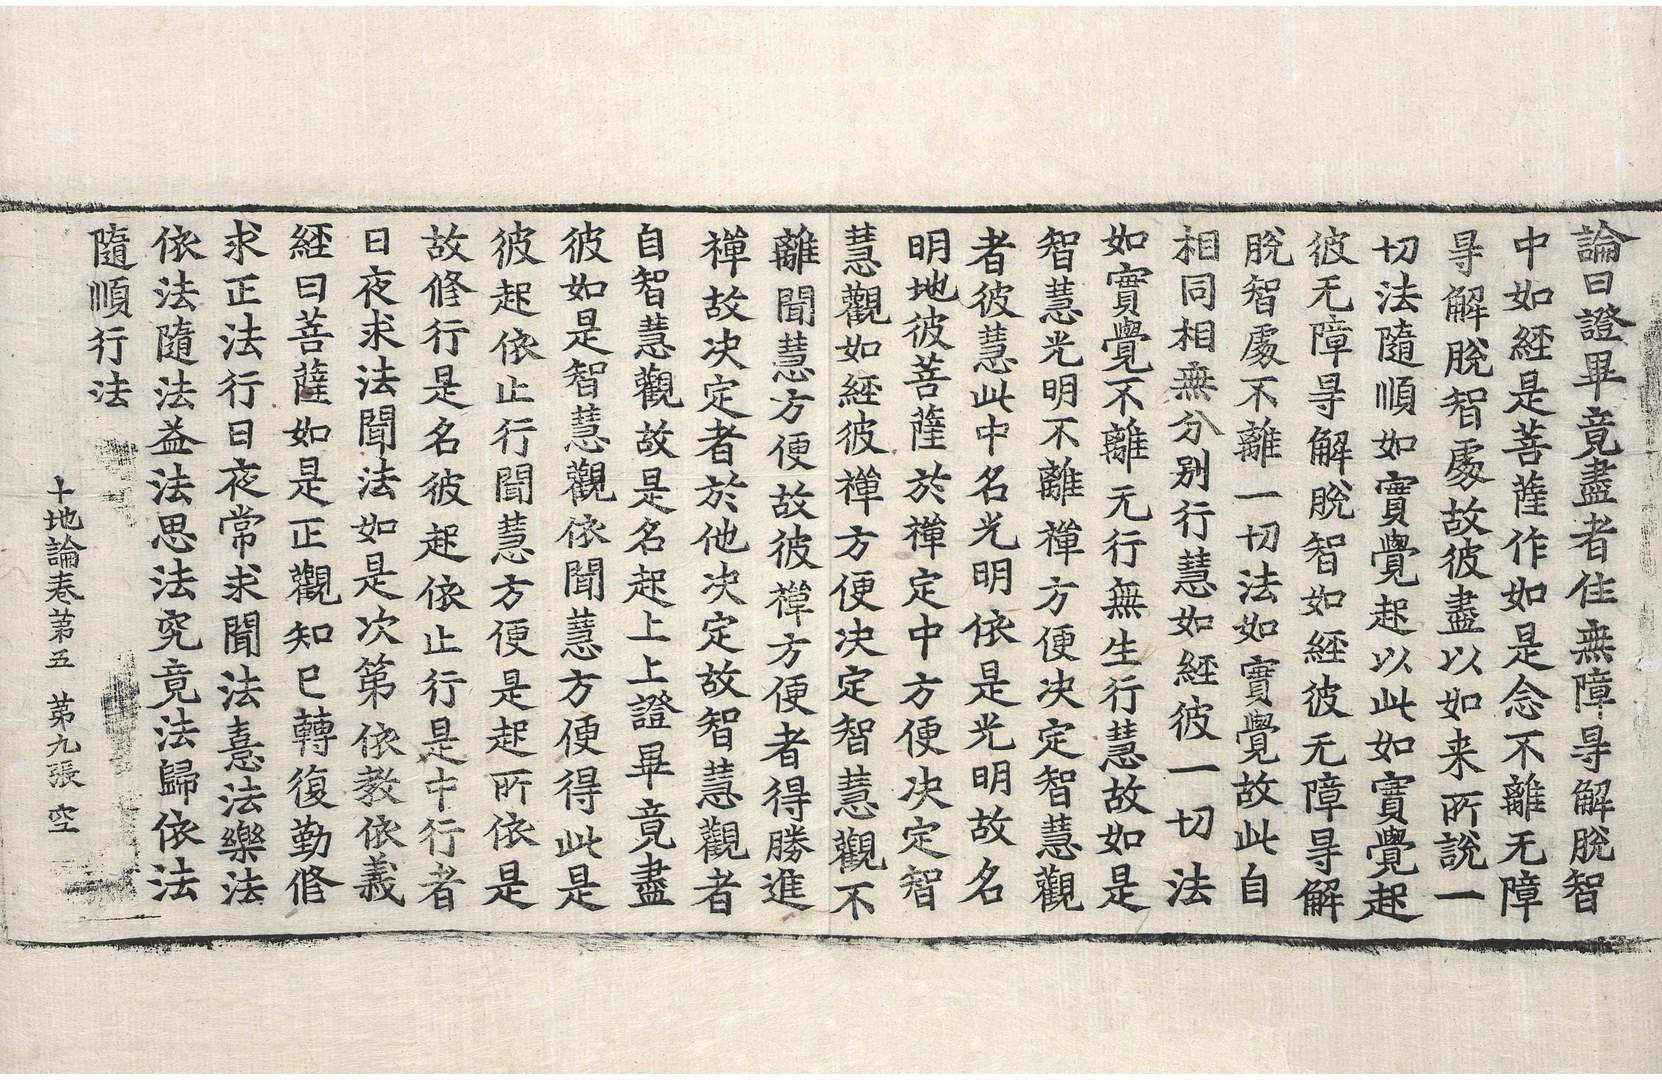 論曰證畢竟盡者住無障㝵解脫智
中如經是菩薩作如是念不離无障
㝵解脫智處故彼盡以如来所說一
切法隨順如實覺起以此如實覺起
彼无障㝵解脫智如經彼无障㝵解
脫智處不離一切法如實覺故此自
相同相無分别行慧如經彼一切法
如實覺不離无行無生行慧故如是
智慧光明不離禪方便决定智慧觀
者彼慧此中名光明依是光明故名
明地彼菩薩於禪定中方便决定智
慧觀如經彼禪方便决定智慧觀不
離聞慧方便故彼禪方便者得勝進
禪故决定者於他决定故智慧觀者
自智慧觀故是名起上上證畢竟盡
彼如是智慧觀依聞慧方便得此是
彼起依止行聞慧方便是起所依是
故修行是名彼起依止行是中行者
日夜求法聞法如是次第依教依義
經曰菩薩如是正觀知已轉復勤修
求正法行日夜常求聞法憙法樂法
依法隨法益法思法究竟法歸依法
隨順行法
十地論卷第五 第九張 空